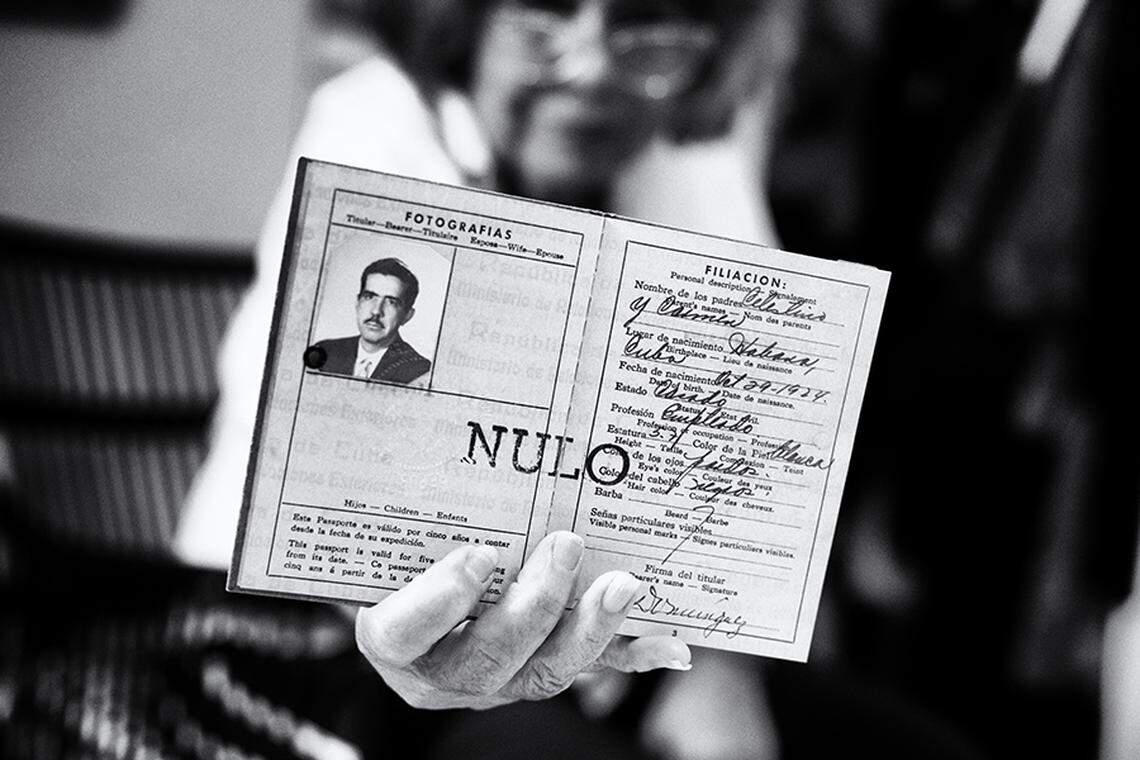 FOTOGRAFIAS
Titular—Bearer—Titulaire Esposa—Wife—Epouse
NULO
Hijos — Children — Enfants
Este Pasaporte es válido por cinco años a contar
desde la fecha de su expedición.
This passport is valid for five
from its date. — Ce passeport
cinq ans á partir de la
FILIACION:
Personal description — Signalement
Nombre de los padres Celestino
Parent's names — Nom des parents
y Carmen
Lugar de nacimiento Habana,
Birthplace — Lieu de naissance
Cuba
Fecha de nacimiento Oct 29-1924.
Date of birth. Date de naissance.
Estado Casado
Status Etat civil.
Profesión Empleado
Profession or occupation — Profession
Estatura 5.7 Color de la Piel blanca
Height — Taille Complexion — Teint
Color de los ojos Pardos.
Eye's color — Couleur des yeux
Color del cabello Negros.
Hair color — Couleur des cheveux.
Barba
Beard — Barbe
Señas particulares visibles
Visible personal marks — Signes particuliers visibles.
Firma del titular
Bearer's name — Signature
Dominguez
3